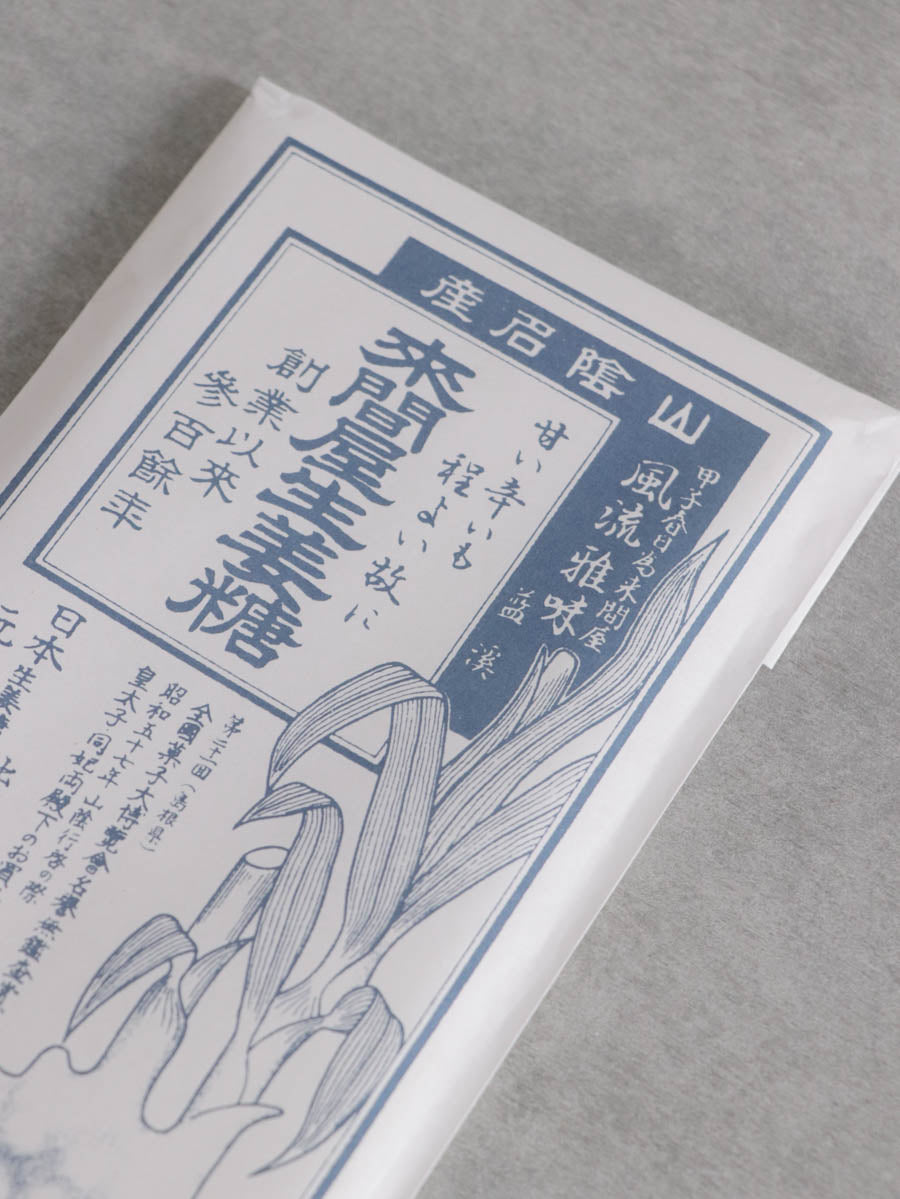 山陰名産
甲子春日為来間屋
風流雅味
藍溪
甘い辛いも
程よい故に
來間屋生姜糖
創業以來
參百餘年
第二十一回(島根県)
全國菓子大博覽會名譽無鑑査賞
昭和五十七年 山陰行啓の際
皇太子同妃両殿下のお買
日本
元
生姜糖